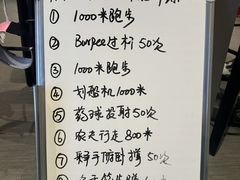 ① 1000米跑步
② Burpee过杆50次
③ 1000米跑步
④ 划船机1000米
⑤ 药球投射50次
⑥ 农夫行走800米
⑦ 释手俯卧撑50次